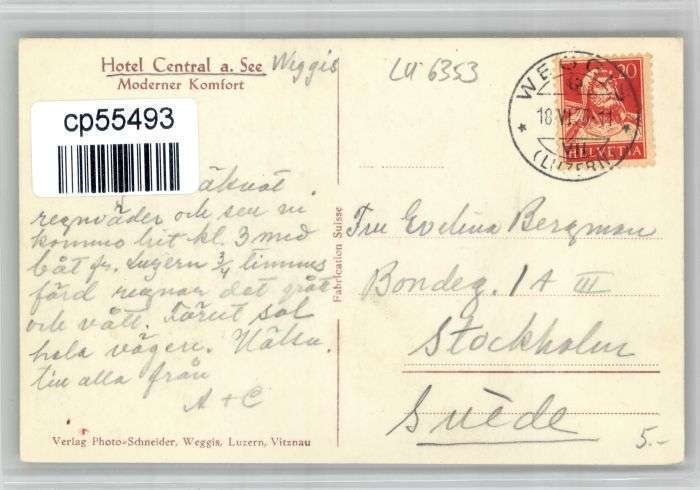 Hotel Central a. See
Weggis
Moderner Komfort
LU 6353
cp55493
WEGGIS
18.VI.30-11
VII
(LUZERN)
20
HELVETIA
regnväder och sen vi
kommo hit kl. 3 med
båt fr. Luzern 3/4 timmes
färd regnar det grått
och vått. Förut sol
hela vägen. Hälsn.
till alla från
A + C
Fabrication Suisse
Fru Evelina Bergman
Bondeg. 1 A III
Stockholm
Suède
5.-
Verlag Photo-Schneider, Weggis, Luzern, Vitznau